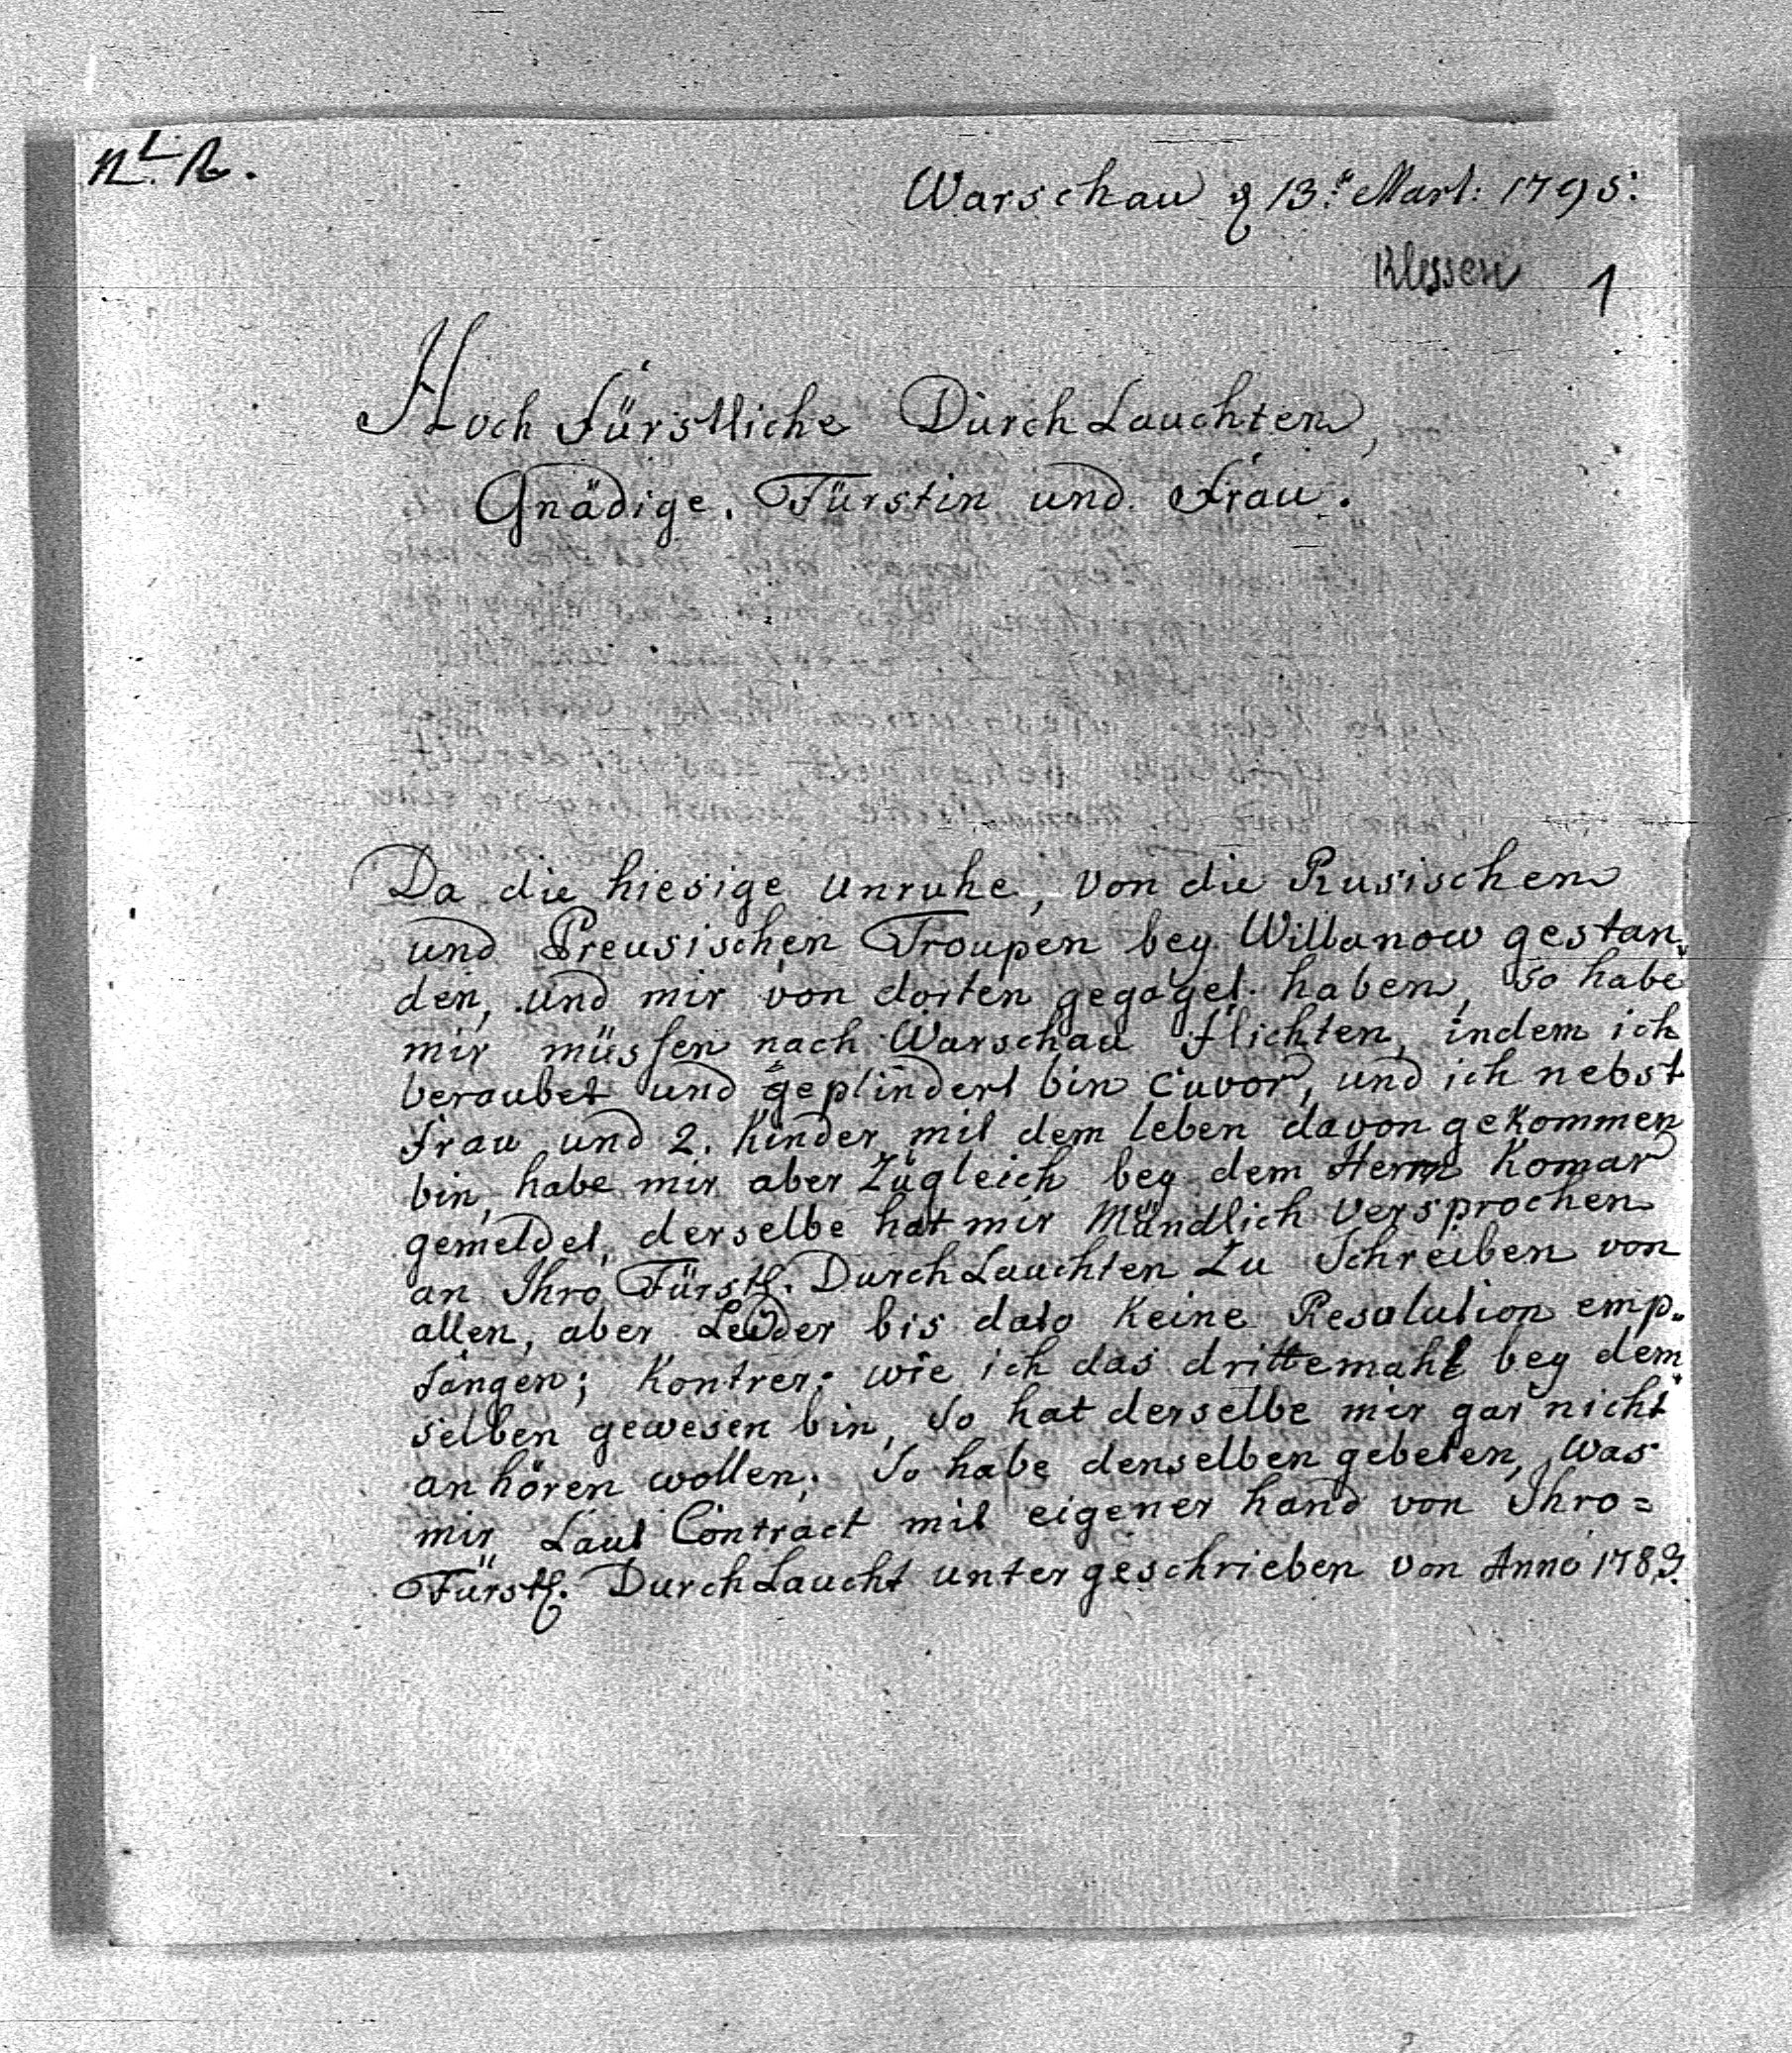 Warschau d 13.t Mart: 1795.
Klessen 1
Hoch Fürstliche Durch Lauchten,
Gnädige. Fürstin und Frau.
Da die hiesige unruhe, von die Rusischen
und Preusischen Troupen bey Willanow gestan„
den, und mir von dorten gegagel haben, so habe
mir müssen nach Warschau flichten, indem ich
beraubet und geplindert bin cuvor, und ich nebst
Frau und 2. Kinder mit dem leben davon gekommen
bin, habe mir aber Zugleich bey dem Herrn Komar
gemeldet, derselbe hat mir Mündlich Versprochen
an Ihro Fürstl. Durch Lauchten Zu Schreiben von
allen, aber Leider bis dato Keine Resolution emp„
fangen; Kontrer. wie ich das drittemahl bey dem„
selben gewesen bin, so hat derselbe mir gar nicht
an hören wollen. So habe denselben gebeten, Was
mir Laut Contract mit eigener hand von Ihro=
Fürstl. Durch Laucht unter geschrieben von Anno 1789.